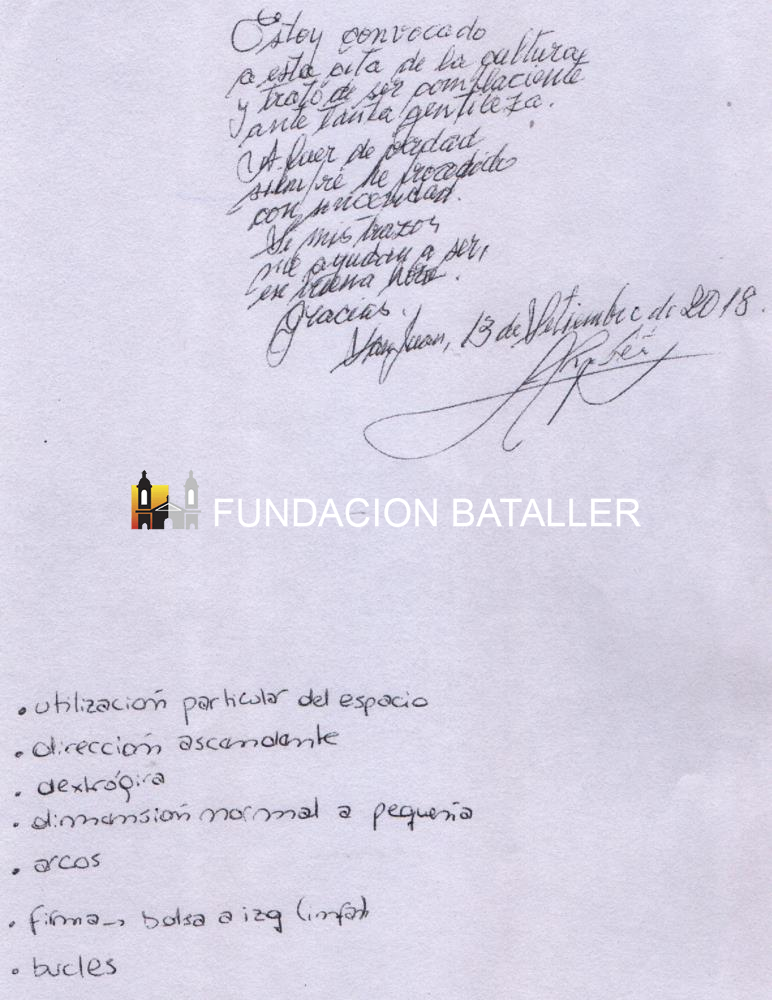 Estoy convocado
a esta cita de la cultura
y trato de ser complaciente
ante tanta gentileza.
A fuer de verdad
siempre he procedido
con sinceridad.
Si mis trazos
me ayudan a ser,
en buena hora.
Gracias.
San Juan, 13 de Setiembre de 2018.
FUNDACION BATALLER
• utilización particular del espacio
• dirección ascendente
• dextrógira
• dimensión normal a pequeña
• arcos
• firma → bolsa a izq (infa)
• bucles